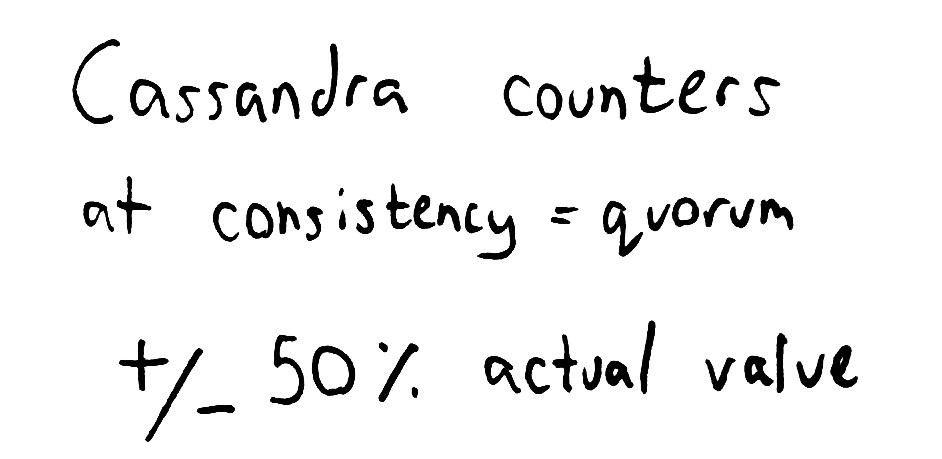 Cassandra counters
at consistency = quorum
+/_ 50% actual value